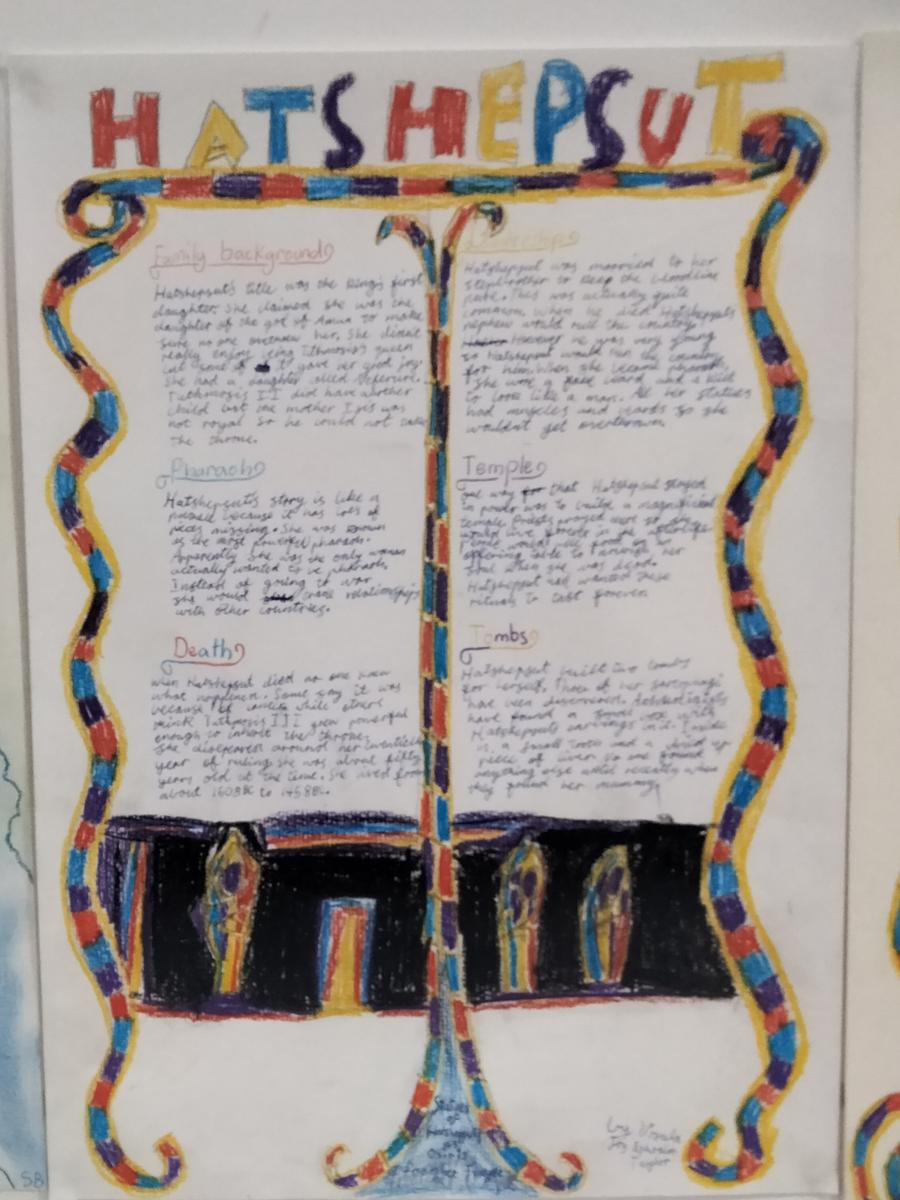 HATSHEPSUT
Family background
Hatshepsut's title was the King's first
daughter. She claimed she was the
daughter of the god of Amun to make
sure no one overthrew her. She didn't
really enjoy being Tuthmosis's queen
but some of it gave her good joy.
She had a daughter called Neferure.
Tuthmosis II did have another
child but the mother Isis was
not royal so he could not take
the throne.
Pharaoh
Hatshepsut's story is like a
puzzle because it has lots of
pieces missing. She was known
as the most powerful pharaoh.
Apparently she was the only woman
actually wanted to be pharaoh.
Instead of going to war
she would relationships
with other countries.
Death
When Hatshepsut died no one knew
what happened. Some say it was
because of cancer while others
think Tuthmosis III grew powerful
enough to inherit the throne.
She disappeared around her twentieth
year of ruling she was about fifty
years old at the time. She lived from
about 1508BC to 1458BC.
Hatshepsut was married to her
stepbrother to keep the bloodline
pure. This was actually quite
common. When he died Hatshepsut's
nephew would rule the country.
However he was very young
so Hatshepsut would run the country
for him. When she became pharaoh,
She wore a fake beard and a kilt
to look like a man. All her statues
had muscles and beards so she
wouldn't get overthrown.
Temple
One way that Hatshepsut stayed
in power was to build a magnificent
temple. Priests prayed there so she
would live forever in the afterlife
People would put food on an
offering table to nourish her
soul when she was dead.
Hatshepsut had wanted these
rituals to last forever.
Tombs
Hatshepsut built two tombs
for herself. Three of her sarcophagi
have been discovered. Archaeologists
have found a small box with
Hatshepsut's carvings on it. Inside
is a small tooth and a dried up
piece of liver no one found
anything else until recently when
they found her mummy.
Statues
of
Hatshepsut
as
Osiris
from her Temple
by
SB